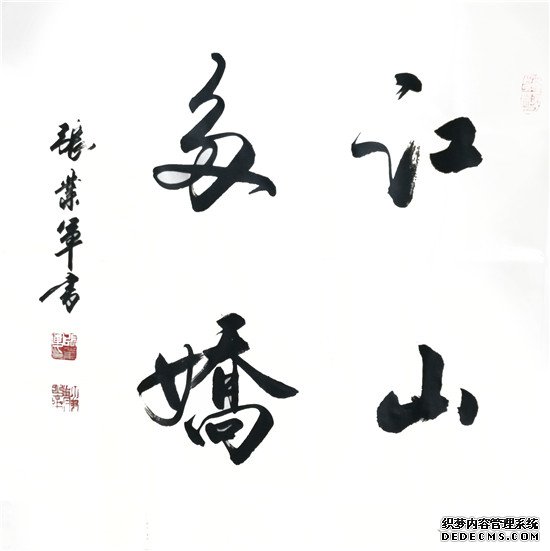 江山
多嬌
張業軍书
织梦内容管理系统
DEDECMS.COM